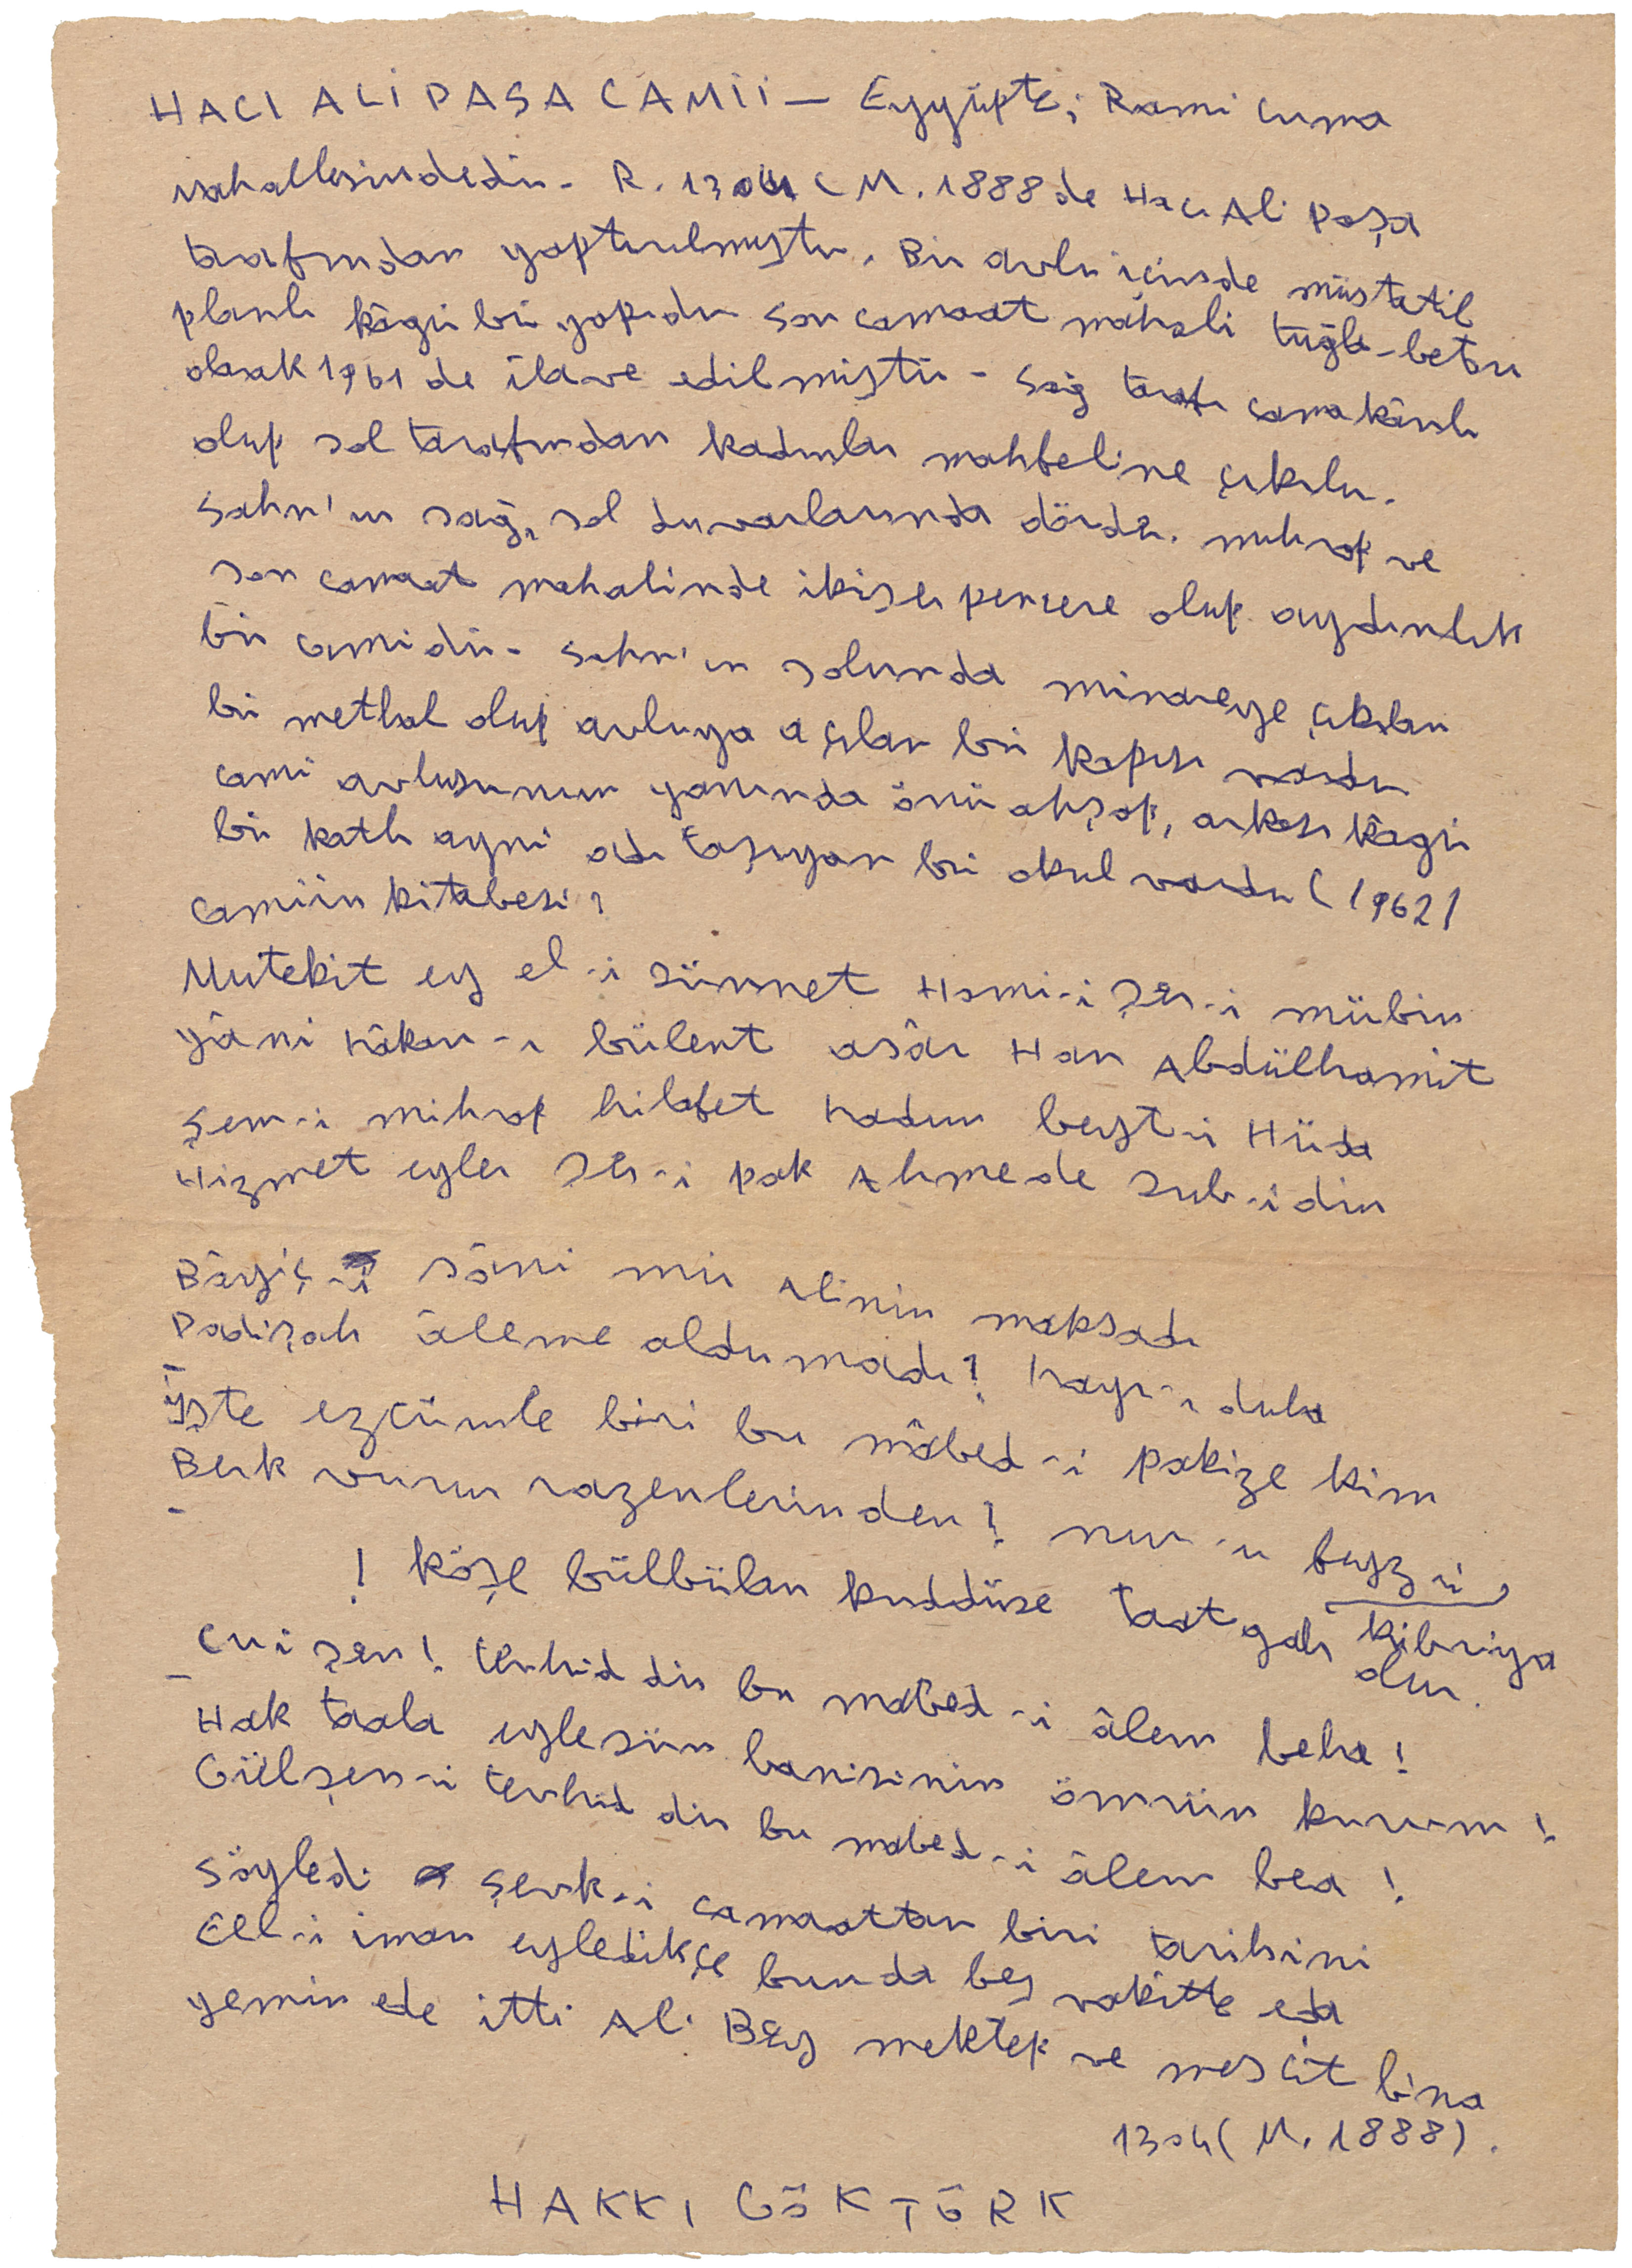 HACI ALİ PAŞA CAMİİ — Eyyüpte; Rami Cuma
mahallesindedir. R. 1304 ( M. 1888 de Hacı Ali Paşa
tarafından yaptırılmıştır. Bir avlu içinde müstatil
planlı kâgir bir yapıdır son camaat mahali tuğla-beton
olarak 1961 de ilave edilmiştir - Sağ tarafı camakânlı
olup sol tarafından kadınlar mahfeline çıkılır.
Sahn'ın sağ, sol duvarlarında dörder. mihrap ve
son camaat mahalinde ikişer pencere olup aydınlık
bir camidir - Sahn'ın solunda minareye çıkılan
bir methal olup avluya açılan bir kapısı vardır
cami avlusunun yanında önü ahşap, arkası kâgir
bir katlı ayni adı taşıyan bir okul vardır (1962)
Camiin kitabesi;
Mutekit ey el-i sünnet Hami-i şer-i mübin
yâni Hâkan-ı bülent asâr Han Abdülhamit
Şem-i mihrap hilafet hadım beyt-i Hüda
Hizmet eyler şer-i pak Ahmede sub-i din
Bâyiç-i sâni mir Alinin maksadı
Padişah âleme aldırmadı? hayr-ı duha
İşte ezcümle biri bu mâbed-i pakize kim
Berk vurur razenlerinden? nur-u feyz-i
kibriya
! Köşe bülbülan kuddüse taatgah olur.
Cui şen! tevhid dir bu mabed-i âlem beha!
Hak taala eylesün banisinin ömrün kuvvm!
Gülşen-i tevhid dir bu mabed-i âlem bea!
Söyledi şevk-i camaattan biri tarihini
Ell-i iman eyledikçe bunda beş vakitte eda
yemin ede itti Ali Bey mektep ve mescit bina
1304 ( M. 1888).
HAKKI GÖKTÜRK